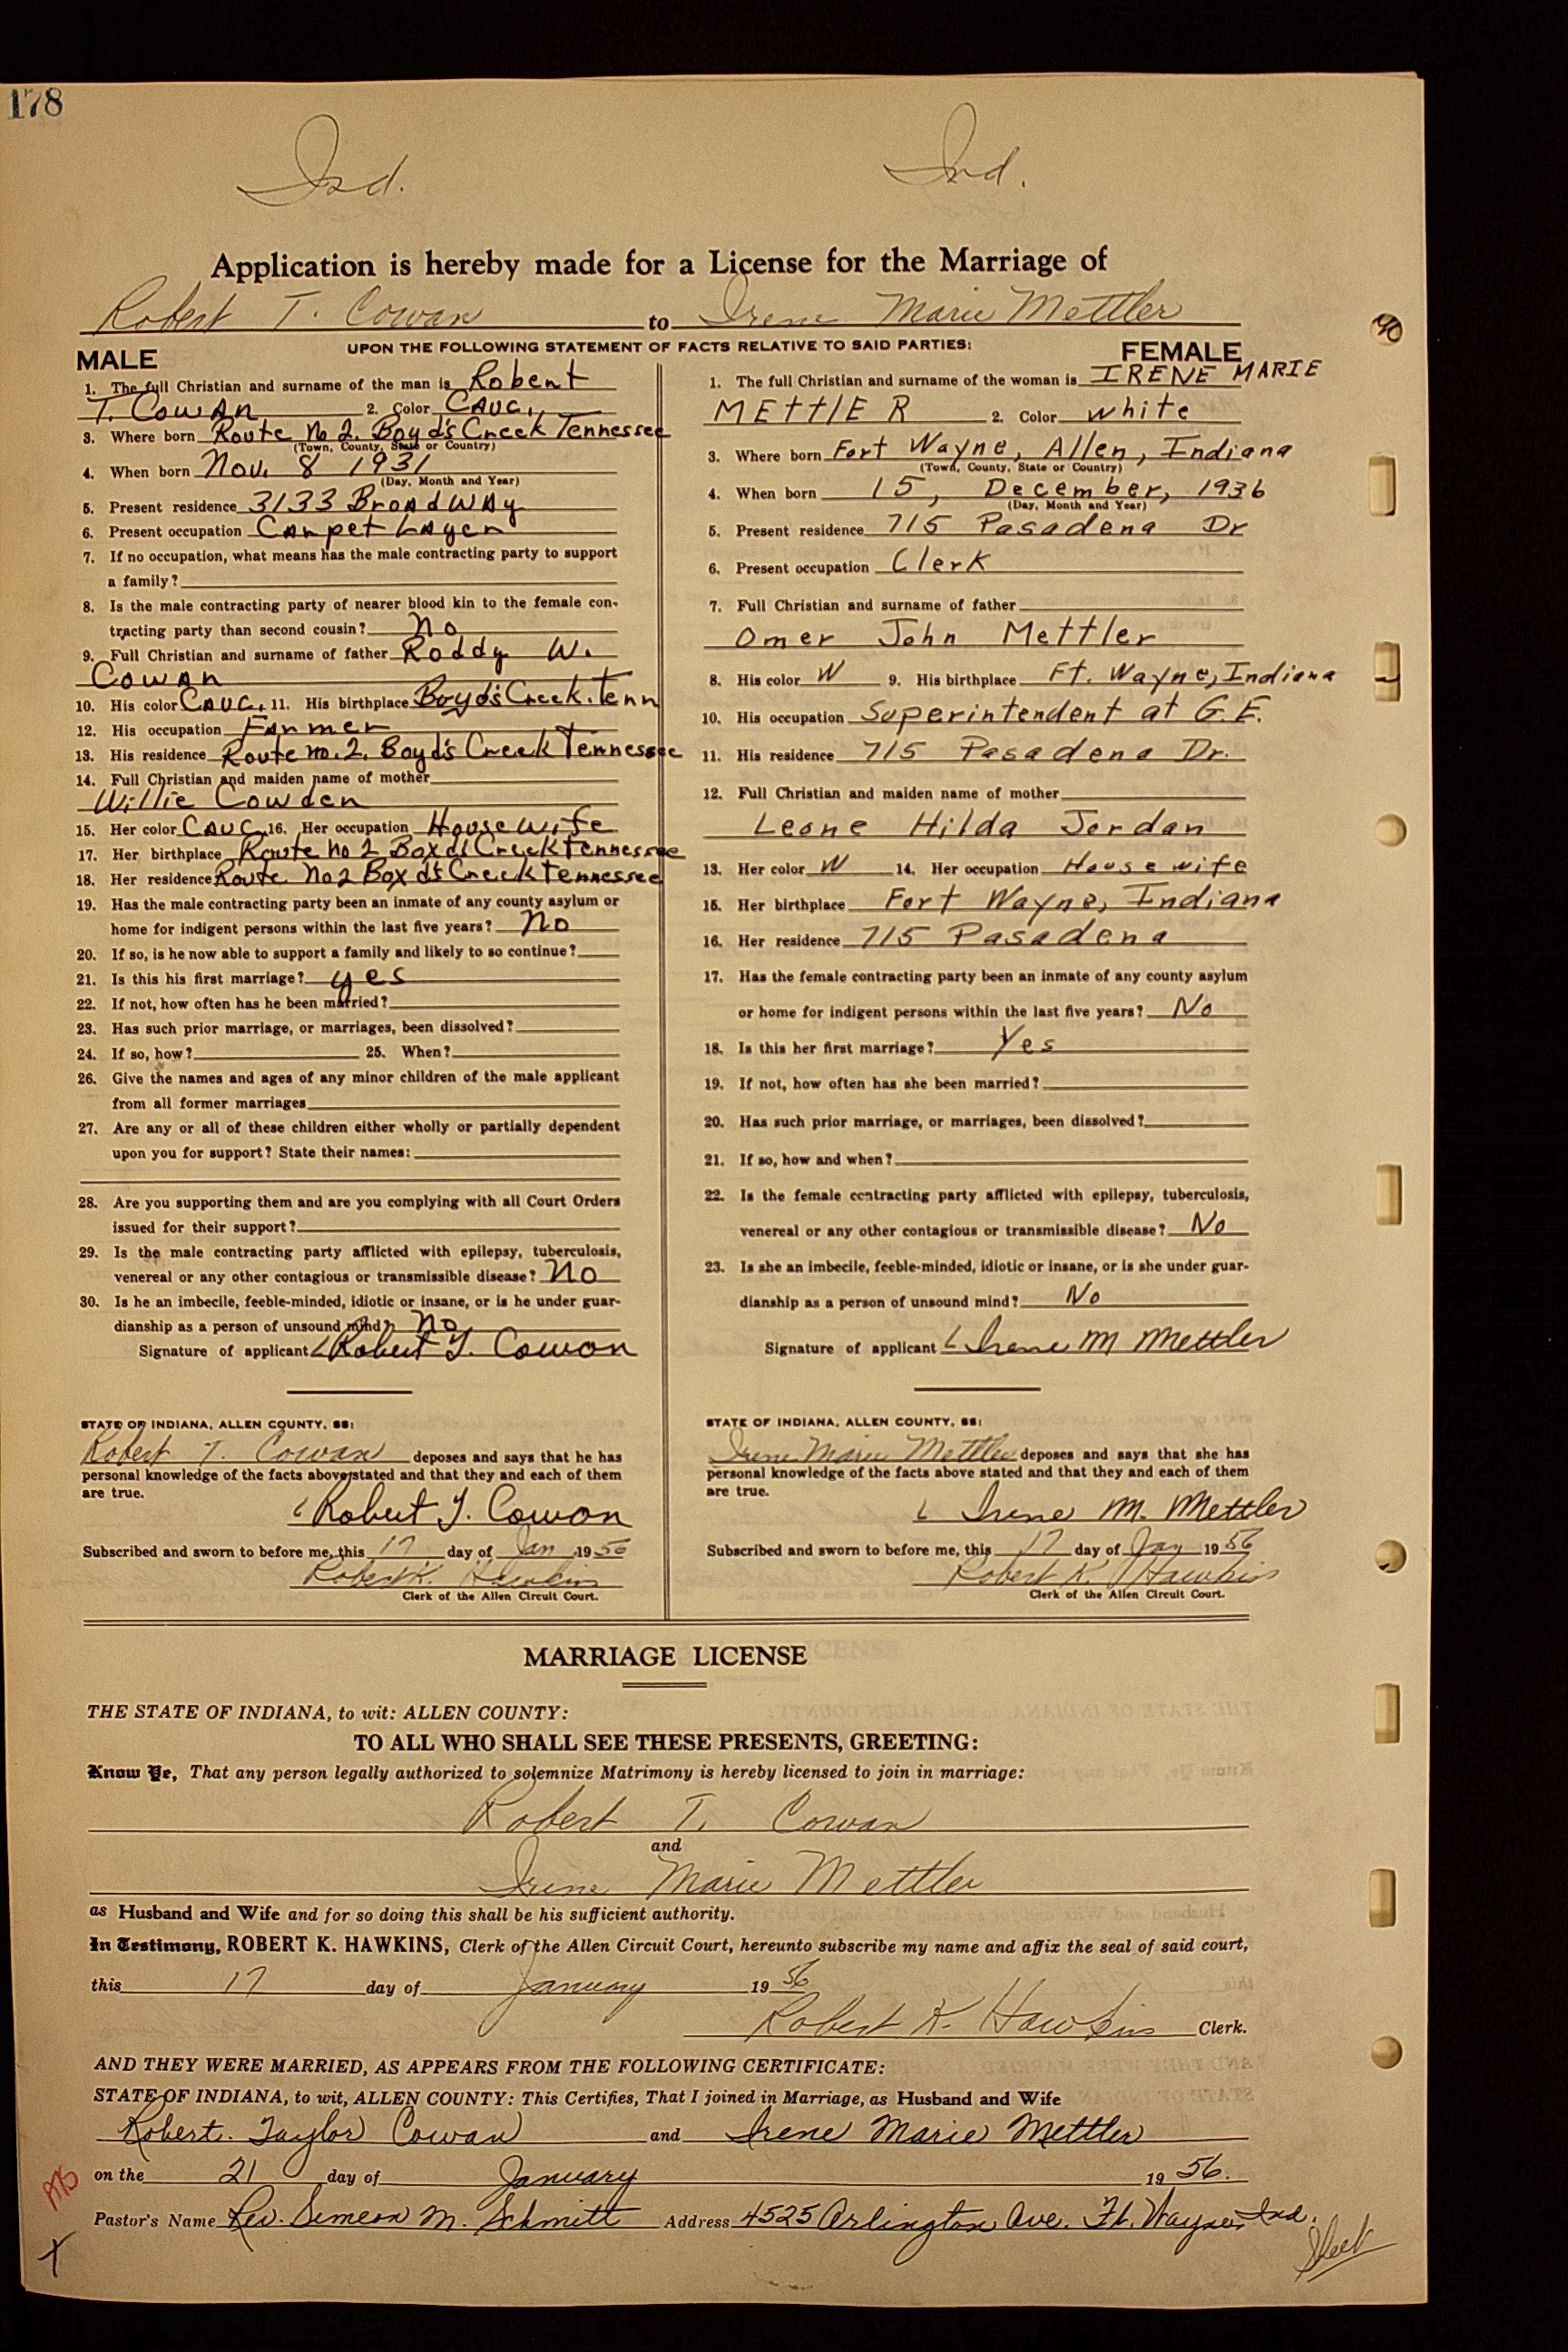 178
Ind. Ind.
Application is hereby made for a License for the Marriage of
Robert T. Cowan to Irene Marie Mettler
UPON THE FOLLOWING STATEMENT OF FACTS RELATIVE TO SAID PARTIES:
MALE
1. The full Christian and surname of the man is Robert
T. Cowan 2. Color Cauc.
3. Where born Route No 2. Boyd's Creek Tennessee
(Town, County, State or Country)
4. When born Nov. 8 1931
(Day, Month and Year)
5. Present residence 3133 Broadway
6. Present occupation Carpet Layer
7. If no occupation, what means has the male contracting party to support
a family?
8. Is the male contracting party of nearer blood kin to the female con-
tracting party than second cousin? No
9. Full Christian and surname of father Roddy W.
Cowan
10. His color Cauc. 11. His birthplace Boyd's Creek. Tenn
12. His occupation Farmer
13. His residence Route no. 2. Boyd's Creek Tennessee
14. Full Christian and maiden name of mother
Willie Cowden
15. Her color Cauc. 16. Her occupation House wife
17. Her birthplace Route no 2 Boxd's Creek Tennessee
18. Her residence Route No 2 Boxd's Creek Tennessee
19. Has the male contracting party been an inmate of any county asylum or
home for indigent persons within the last five years? No
20. If so, is he now able to support a family and likely to so continue?
21. Is this his first marriage? yes
22. If not, how often has he been married?
23. Has such prior marriage, or marriages, been dissolved?
24. If so, how? 25. When?
26. Give the names and ages of any minor children of the male applicant
from all former marriages
27. Are any or all of these children either wholly or partially dependent
upon you for support? State their names:
28. Are you supporting them and are you complying with all Court Orders
issued for their support?
29. Is the male contracting party afflicted with epilepsy, tuberculosis,
venereal or any other contagious or transmissible disease? No
30. Is he an imbecile, feeble-minded, idiotic or insane, or is he under guar-
dianship as a person of unsound mind? no
Signature of applicant Robert T. Cowan
STATE OF INDIANA, ALLEN COUNTY, SS:
Robert T. Cowan deposes and says that he has
personal knowledge of the facts above stated and that they and each of them
are true.
Robert T. Cowan
Subscribed and sworn to before me, this 17 day of Jan 1956
Robert K. Hawkins
Clerk of the Allen Circuit Court.
FEMALE
1. The full Christian and surname of the woman is IRENE MARIE
METTLER 2. Color White
3. Where born Fort Wayne, Allen, Indiana
(Town, County, State or Country)
4. When born 15, December, 1936
(Day, Month and Year)
5. Present residence 715 Pasadena Dr
6. Present occupation Clerk
7. Full Christian and surname of father
Omer John Mettler
8. His color W 9. His birthplace Ft. Wayne, Indiana
10. His occupation Superintendent at G.E.
11. His residence 715 Pasadena Dr.
12. Full Christian and maiden name of mother
Leone Hilda Jordan
13. Her color W 14. Her occupation House wife
15. Her birthplace Fort Wayne, Indiana
16. Her residence 715 Pasadena
17. Has the female contracting party been an inmate of any county asylum
or home for indigent persons within the last five years? No
18. Is this her first marriage? Yes
19. If not, how often has she been married?
20. Has such prior marriage, or marriages, been dissolved?
21. If so, how and when?
22. Is the female contracting party afflicted with epilepsy, tuberculosis,
venereal or any other contagious or transmissible disease? No
23. Is she an imbecile, feeble-minded, idiotic or insane, or is she under guar-
dianship as a person of unsound mind? No
Signature of applicant Irene M Mettler
STATE OF INDIANA, ALLEN COUNTY, SS:
Irene Marie Mettler deposes and says that she has
personal knowledge of the facts above stated and that they and each of them
are true.
Irene M. Mettler
Subscribed and sworn to before me, this 17 day of Jan 1956
Robert K. Hawkins
Clerk of the Allen Circuit Court.
MARRIAGE LICENSE
THE STATE OF INDIANA, to wit: ALLEN COUNTY:
TO ALL WHO SHALL SEE THESE PRESENTS, GREETING:
Know Ye, That any person legally authorized to solemnize Matrimony is hereby licensed to join in marriage:
Robert T. Cowan
and
Irene Marie Mettler
as Husband and Wife and for so doing this shall be his sufficient authority.
In Testimony, ROBERT K. HAWKINS, Clerk of the Allen Circuit Court, hereunto subscribe my name and affix the seal of said court,
this 17 day of January 1956
Robert K. Hawkins Clerk.
AND THEY WERE MARRIED, AS APPEARS FROM THE FOLLOWING CERTIFICATE:
STATE OF INDIANA, to wit, ALLEN COUNTY: This Certifies, That I joined in Marriage, as Husband and Wife
Robert. Taylor Cowan and Irene Marie Mettler
on the 21 day of January 1956.
Pastor's Name Rev. Simeon M. Schmitt Address 4525 Arlington Ave. Ft. Wayne, Ind.